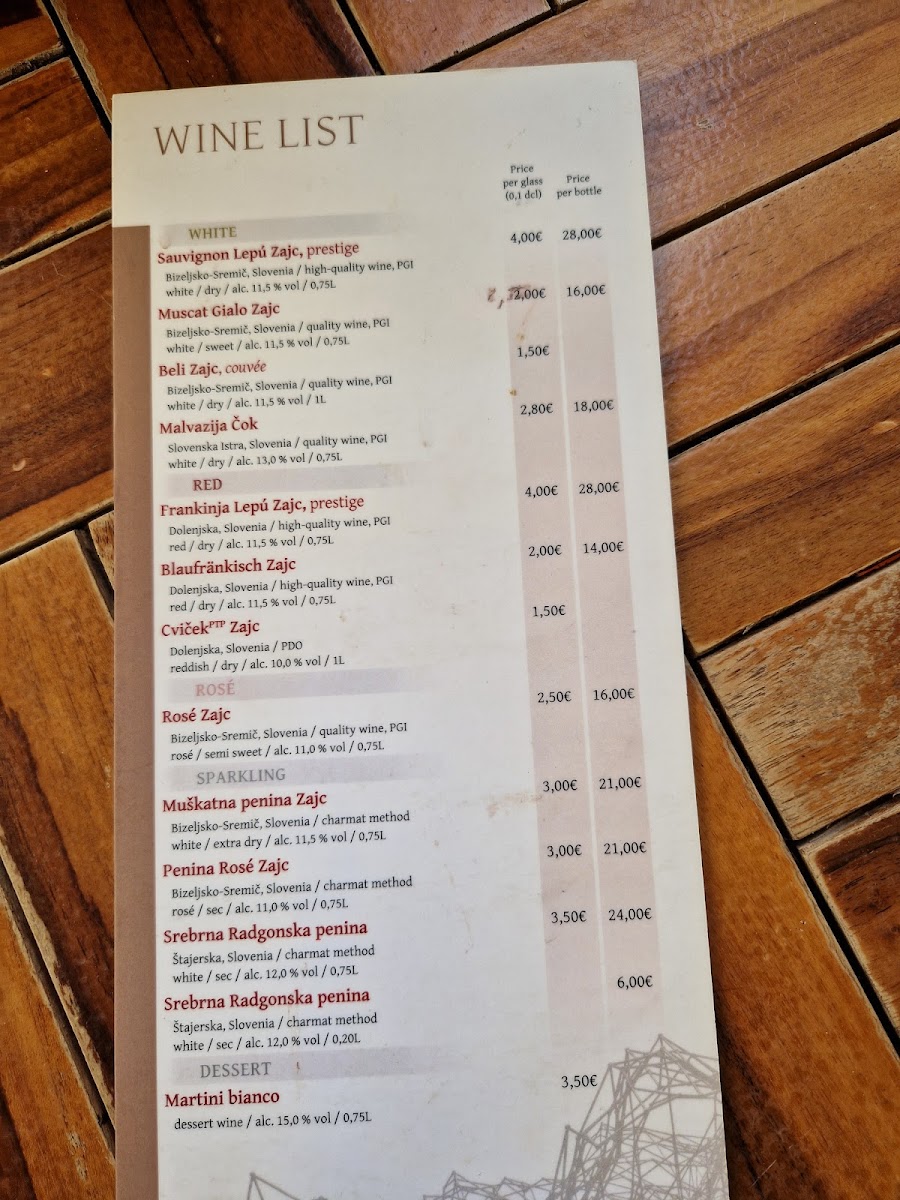 WINE LIST
Price
per glass
(0,1 dcl)
Price
per bottle
WHITE
Sauvignon Lepú Zajc, prestige 4,00€ 28,00€
Bizeljsko-Sremič, Slovenia / high-quality wine, PGI
white / dry / alc. 11,5 % vol / 0,75L
Muscat Gialo Zajc 2,00€ 16,00€
Bizeljsko-Sremič, Slovenia / quality wine, PGI
white / sweet / alc. 11,5 % vol / 0,75L
Beli Zajc, couvée 1,50€
Bizeljsko-Sremič, Slovenia / quality wine, PGI
white / dry / alc. 11,5 % vol / 1L
Malvazija Čok 2,80€ 18,00€
Slovenska Istra, Slovenia / quality wine, PGI
white / dry / alc. 13,0 % vol / 0,75L
RED
Frankinja Lepú Zajc, prestige 4,00€ 28,00€
Dolenjska, Slovenia / high-quality wine, PGI
red / dry / alc. 11,5 % vol / 0,75L
Blaufränkisch Zajc 2,00€ 14,00€
Dolenjska, Slovenia / high-quality wine, PGI
red / dry / alc. 11,5 % vol / 0,75L
CvičekPTP Zajc 1,50€
Dolenjska, Slovenia / PDO
reddish / dry / alc. 10,0 % vol / 1L
ROSÉ
Rosé Zajc 2,50€ 16,00€
Bizeljsko-Sremič, Slovenia / quality wine, PGI
rosé / semi sweet / alc. 11,0 % vol / 0,75L
SPARKLING
Muškatna penina Zajc 3,00€ 21,00€
Bizeljsko-Sremič, Slovenia / charmat method
white / extra dry / alc. 11,5 % vol / 0,75L
Penina Rosé Zajc 3,00€ 21,00€
Bizeljsko-Sremič, Slovenia / charmat method
rosé / sec / alc. 11,0 % vol / 0,75L
Srebrna Radgonska penina 3,50€ 24,00€
Štajerska, Slovenia / charmat method
white / sec / alc. 12,0 % vol / 0,75L
Srebrna Radgonska penina 6,00€
Štajerska, Slovenia / charmat method
white / sec / alc. 12,0 % vol / 0,20L
DESSERT
Martini bianco 3,50€
dessert wine / alc. 15,0 % vol / 0,75L